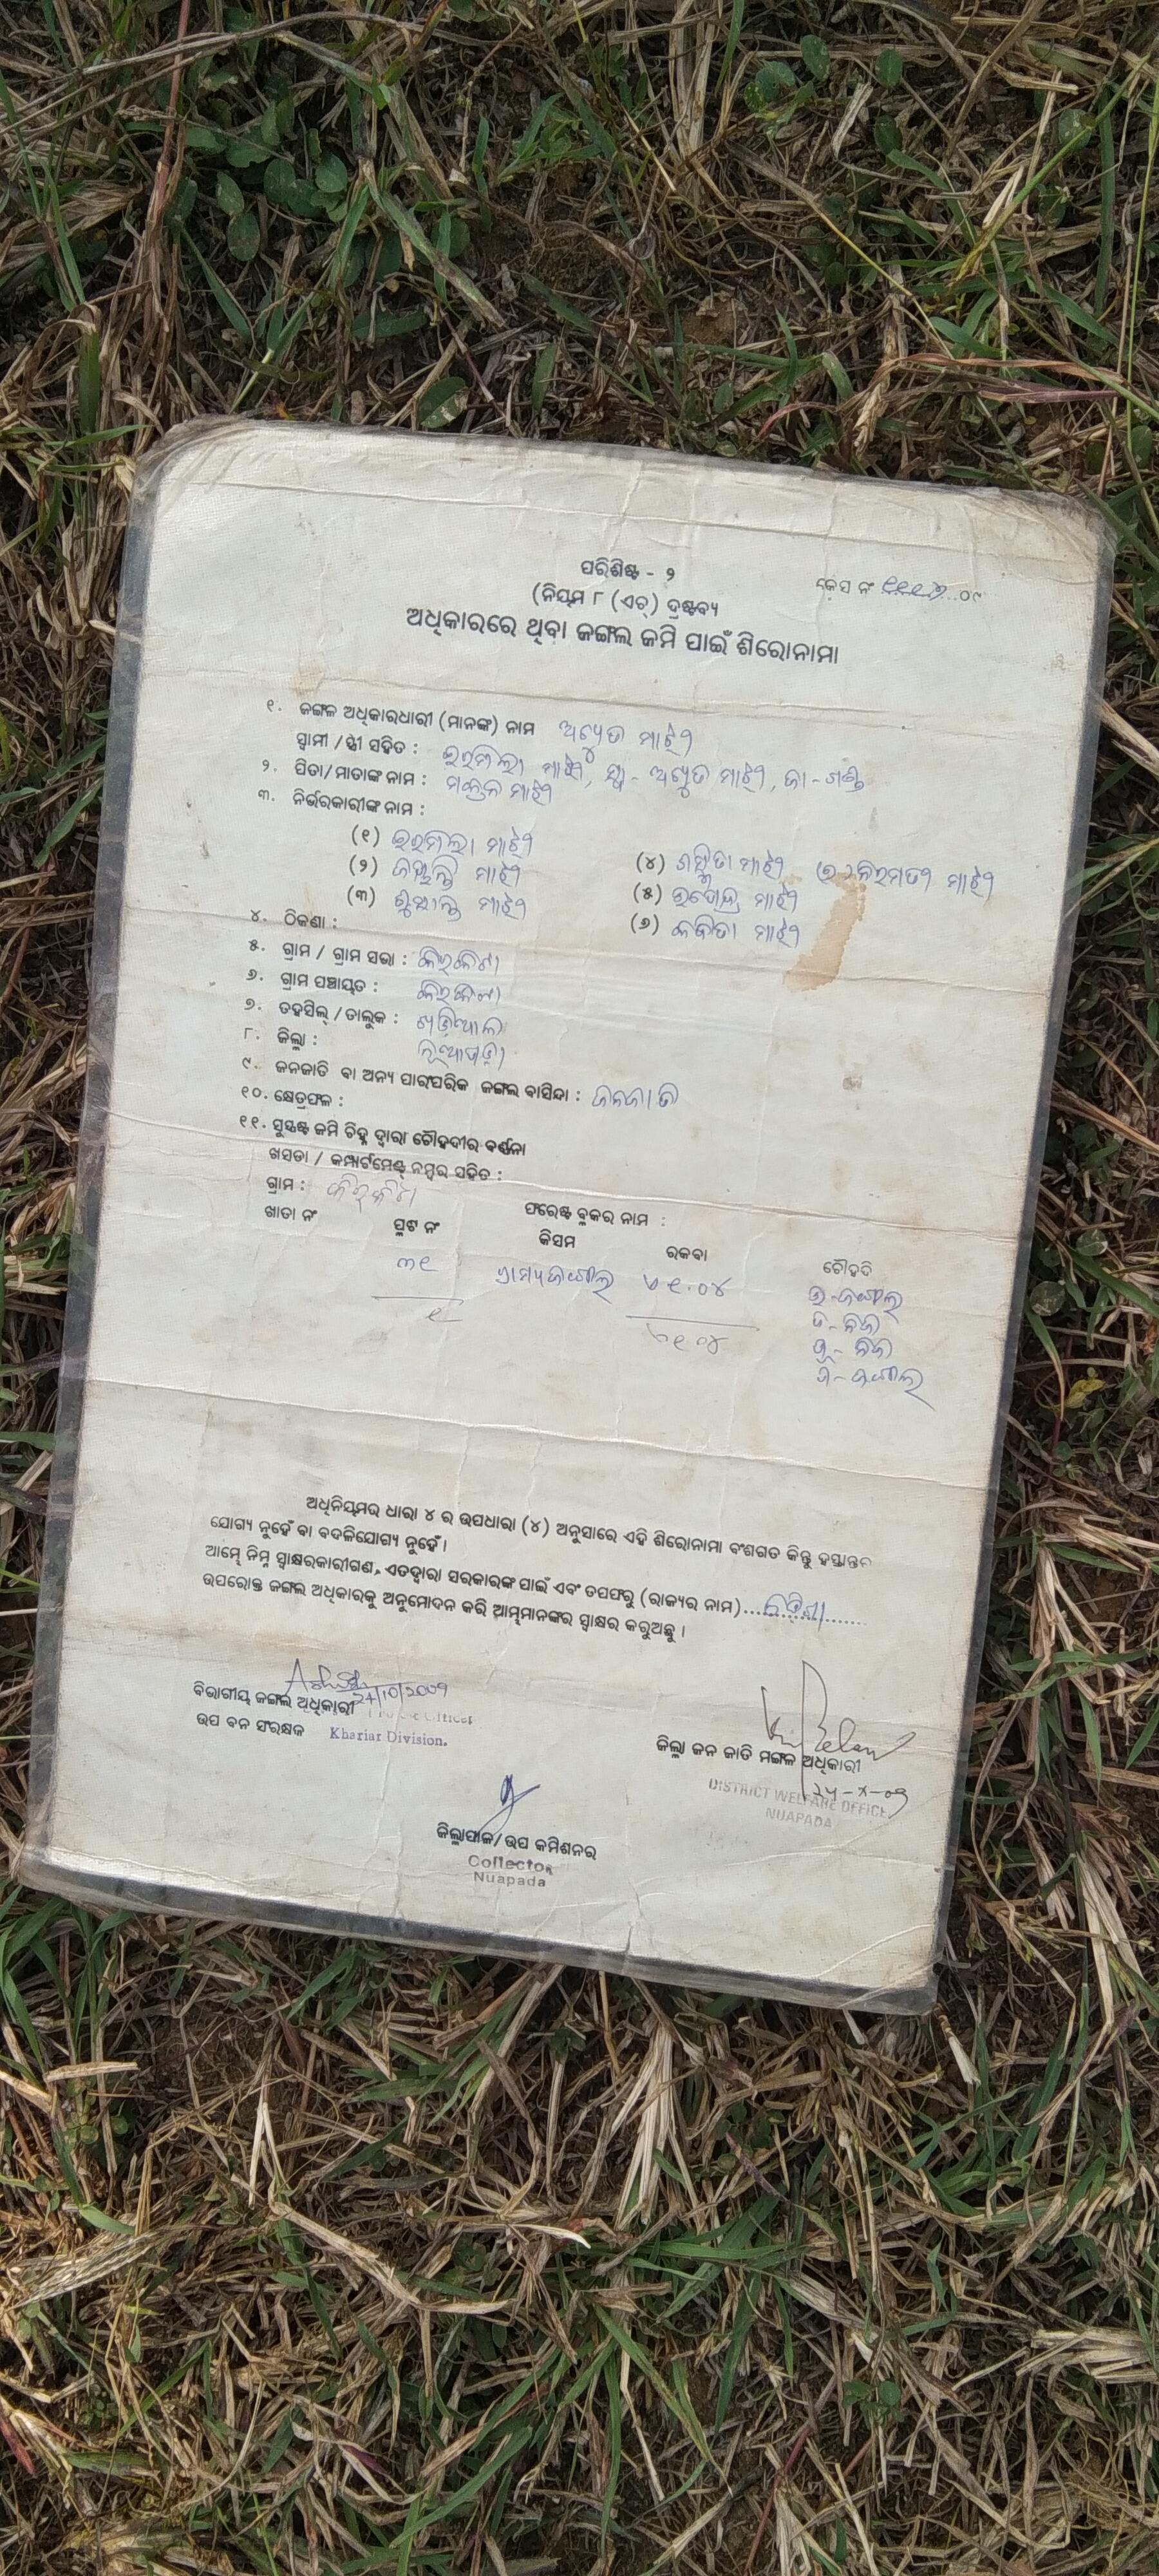 ପରିଶିଷ୍ଟ - ୨
କେସ ନଂ ୧୧୧୬..୦୯
(ନିୟମ ୮ (ଏଚ୍) ଦ୍ରଷ୍ଟବ୍ୟ
ଅଧିକାରରେ ଥିବା ଜଙ୍ଗଲ ଜମି ପାଇଁ ଶିରୋନାମା
୧. ଜଙ୍ଗଳ ଅଧିକାରଧାରୀ (ମାନଙ୍କ) ନାମ ଅଚ୍ୟୁତ ମାଝୀ
ସ୍ୱାମୀ / ସ୍ତ୍ରୀ ସହିତ : ଉରମିଲା ମାଝୀ, ସ୍ୱା - ଅଚ୍ୟୁତ ମାଝୀ, ଜା - ଗଣ୍ଡ
୨. ପିତା/ମାତାଙ୍କ ନାମ : ମଙ୍ଗଳ ମାଝୀ
୩. ନିର୍ଭରକାରୀଙ୍କ ନାମ :
(୧) ଉରମିଲା ମାଝୀ (୪) ମାଝୀ ମାଝୀ
(୨) ଜୟନ୍ତି ମାଝୀ (୫) ଉପେନ୍ଦ୍ର ମାଝୀ
(୩) ସୁଷାନ୍ତ ମାଝୀ (୬) କବିତା ମାଝୀ
୪. ଠିକଣା :
୫. ଗ୍ରାମ / ଗ୍ରାମ ସଭା : କିରକିଟା
୬. ଗ୍ରାମ ପଞ୍ଚାୟତ : କିରକିଟା
୭. ତହସିଲ୍ / ତାଲୁକ : ଖଡ଼ିଆଲ
୮. ଜିଲ୍ଲା : ନୂଆପଡ଼ା
୯. ଜନଜାତି ବା ଅନ୍ୟ ପାରଂପରିକ ଜଙ୍ଗଲ ବାସିନ୍ଦା : ଜନଜାତି
୧୦. କ୍ଷେତ୍ରଫଳ :
୧୧. ସୁସ୍ପଷ୍ଟ ଜମି ଚିହ୍ନ ଦ୍ୱାରା ଚୌହଦୀର ବର୍ଣ୍ଣନା
ଖସଡା / କମ୍ପାର୍ଟମେଣ୍ଟ୍ ନମ୍ବର ସହିତ :
ଗ୍ରାମ : କିରକିଟା ଫରେଷ୍ଟ ବ୍ଲକର ନାମ :
ଖାତା ନଂ ପ୍ଲଟ ନଂ କିସମ ରକବା ଚୌହଦି
୩୧ ଗ୍ରାମ୍ୟଜଙ୍ଗଲ ୧.୦୪ ଉ-ଜଙ୍ଗଲ
୧ ୧.୦୪ ଦ-ନିଜ
ପୂ- ନିଜ
ପ-ଜଙ୍ଗଲ
ଅଧିନିୟମଭ ଧାରା ୪ ର ଉପଧାରା (୪) ଅନୁସାରେ ଏହି ଶିରୋନାମା ବଂଶଗତ କିନ୍ତୁ ହସ୍ତାନ୍ତର
ଯୋଗ୍ୟ ନୁହେଁ ବା ବଦଳିଯୋଗ୍ୟ ନୁହେଁ ।
ଆମ୍ଭେ ନିମ୍ନ ସ୍ୱାକ୍ଷରକାରୀଗଣ, ଏତଦ୍ୱାରା ସରକାରଙ୍କ ପାଇଁ ଏବଂ ତପଫରୁ (ରାଜ୍ୟର ନାମ)....ଓଡ଼ିଶା.......
ଉପରୋକ୍ତ ଜଙ୍ଗଲ ଅଧିକାରକୁ ଅନୁମୋଦନ କରି ଆମ୍ଭମାନଙ୍କର ସ୍ୱାକ୍ଷର କରୁଅଛୁ ।
24/10/2009
ବିଭାଗୀୟ ଜଙ୍ଗଲ ଅଧିକାରୀ
ଉପ ବନ ସଂରକ୍ଷକ Khariar Division.
ଜିଲ୍ଲା ଜନ ଜାତି ମଙ୍ଗଳ ଅଧିକାରୀ
24-X-09
DISTRICT WELFARE OFFICE
NUAPADA
ଜିଲ୍ଲାପାଳ/ଉପ କମିଶନର
Collector
Nuapada